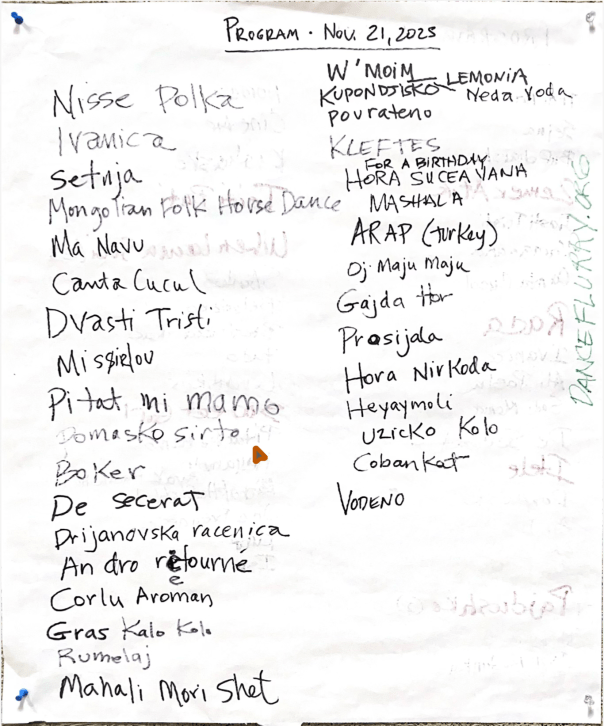 PROGRAM · NOV. 21, 2025
Nisse Polka
Ivanica
Setnja
Mongolian Folk Horse Dance
Ma Navu
Canta Cucul
Dvasti Tristi
Missirlou
Pitat mi mamo
Domasko sirto
Boker
De secerat
Drijanovska racenica
An dro retourné
e
Corlu Aroman
Gras Kalo Kolo
Rumelaj
Mahali Mori Shet
W'MOIM
LEMONIA
KUPONDJISKO
Neda Voda
povrateno
KLEFTES
FOR A BIRTHDAY
HORA SUCEAVANA
MASHALA
ARAP (turkey)
Oj Maju Maju
Gajda Hor
Prosijala
Hora Nirkoda
Heyaymoli
Uzicko Kolo
Cobankat
VODENO
DANCEFLURRY.ORG